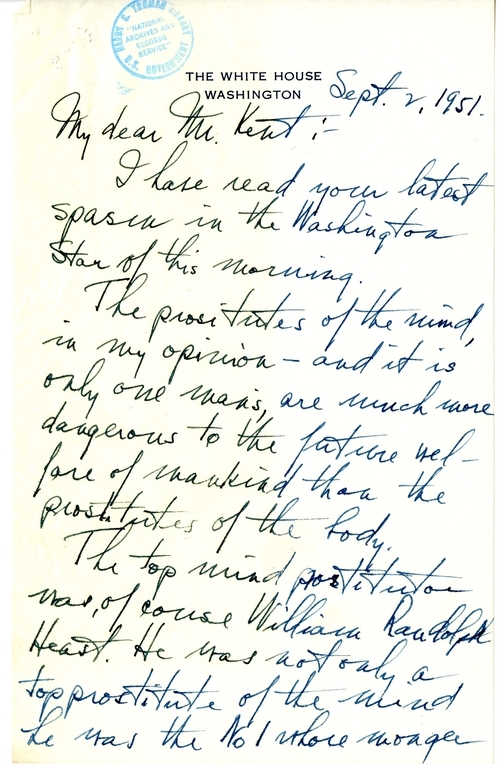 HARRY S. TRUMAN LIBRARY
"NATIONAL
ARCHIVES AND
RECORDS
SERVICE"
U.S. GOVERNMENT
THE WHITE HOUSE
WASHINGTON
Sept. 2, 1951.
My dear Mr. Kent:-
I have read your latest
spasm in the Washington
Star of this morning.
The prosititutes of the mind,
in my opinion - and it is
only one man's, are much more
dangerous to the future wel-
fare of mankind than the
prostitutes of the body.
The top mind prostitutor
was, of couse William Randolph
Hearst. He was not only a
top prostitute of the mind
he was the No 1 whore monger